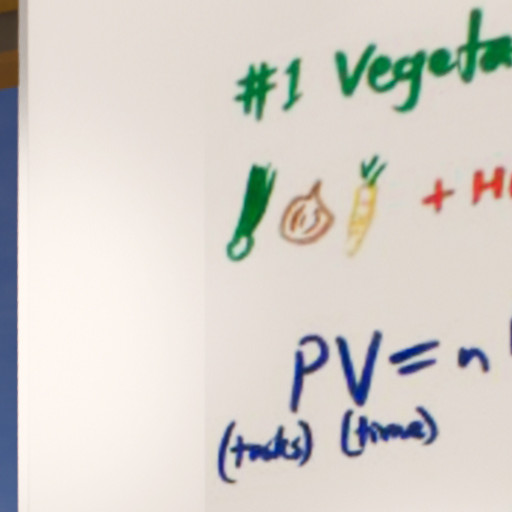 #1 Vegeta
+ H
PV = n
(tasks) (time)